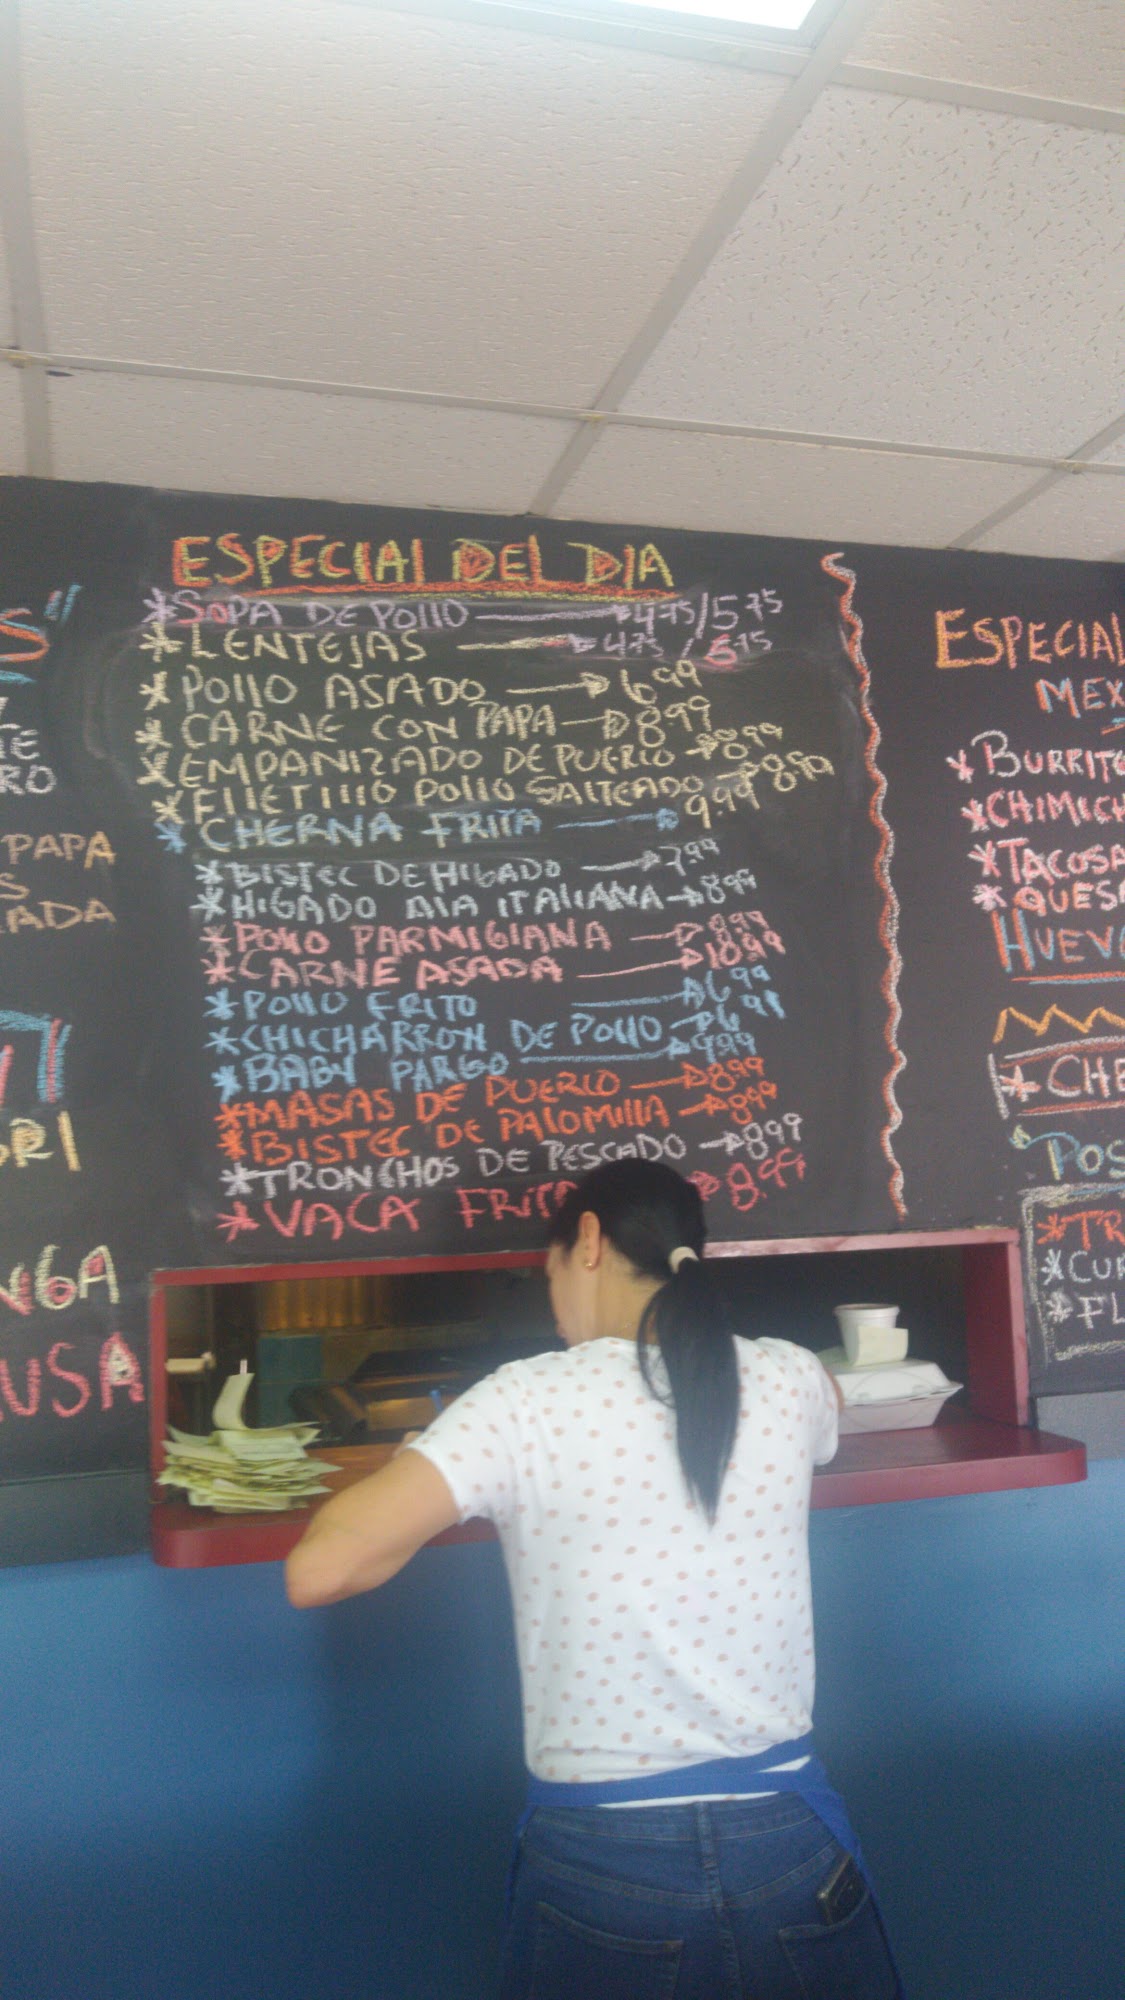 ESPECIAL DEL DIA
*SOPA DE POLLO 4.75/5.75
*LENTEJAS 4.75/5.75
*POLLO ASADO 6.99
*CARNE CON PAPA 8.99
*EMPANIZADO DE PUERCO 8.99
*FILLETILLO POLLO SALTEADO 8.99
*CHERNA FRITA 9.99
*BISTEC DE HIGADO 7.99
*HIGADO ALA ITALIANA 8.99
*POLLO PARMIGIANA 8.99
*CARNE ASADA 10.99
*POLLO FRITO 6.99
*CHICHARRON DE POLLO 6.99
*BABY PARGO 9.99
*MASAS DE PUERCO 8.99
*BISTEC DE PALOMILLA 8.99
*TRONCHOS DE PESCADO 8.99
*VACA FRITA 8.99
S"
E
RO
PAPA
S
ADA
ORI
NGA
USA
ESPECIAL
MEX
*BURRITO
*CHIMICH
*TACOSA
*QUESA
HUEVO
*CHE
POS
*TR
*CUR
*FL